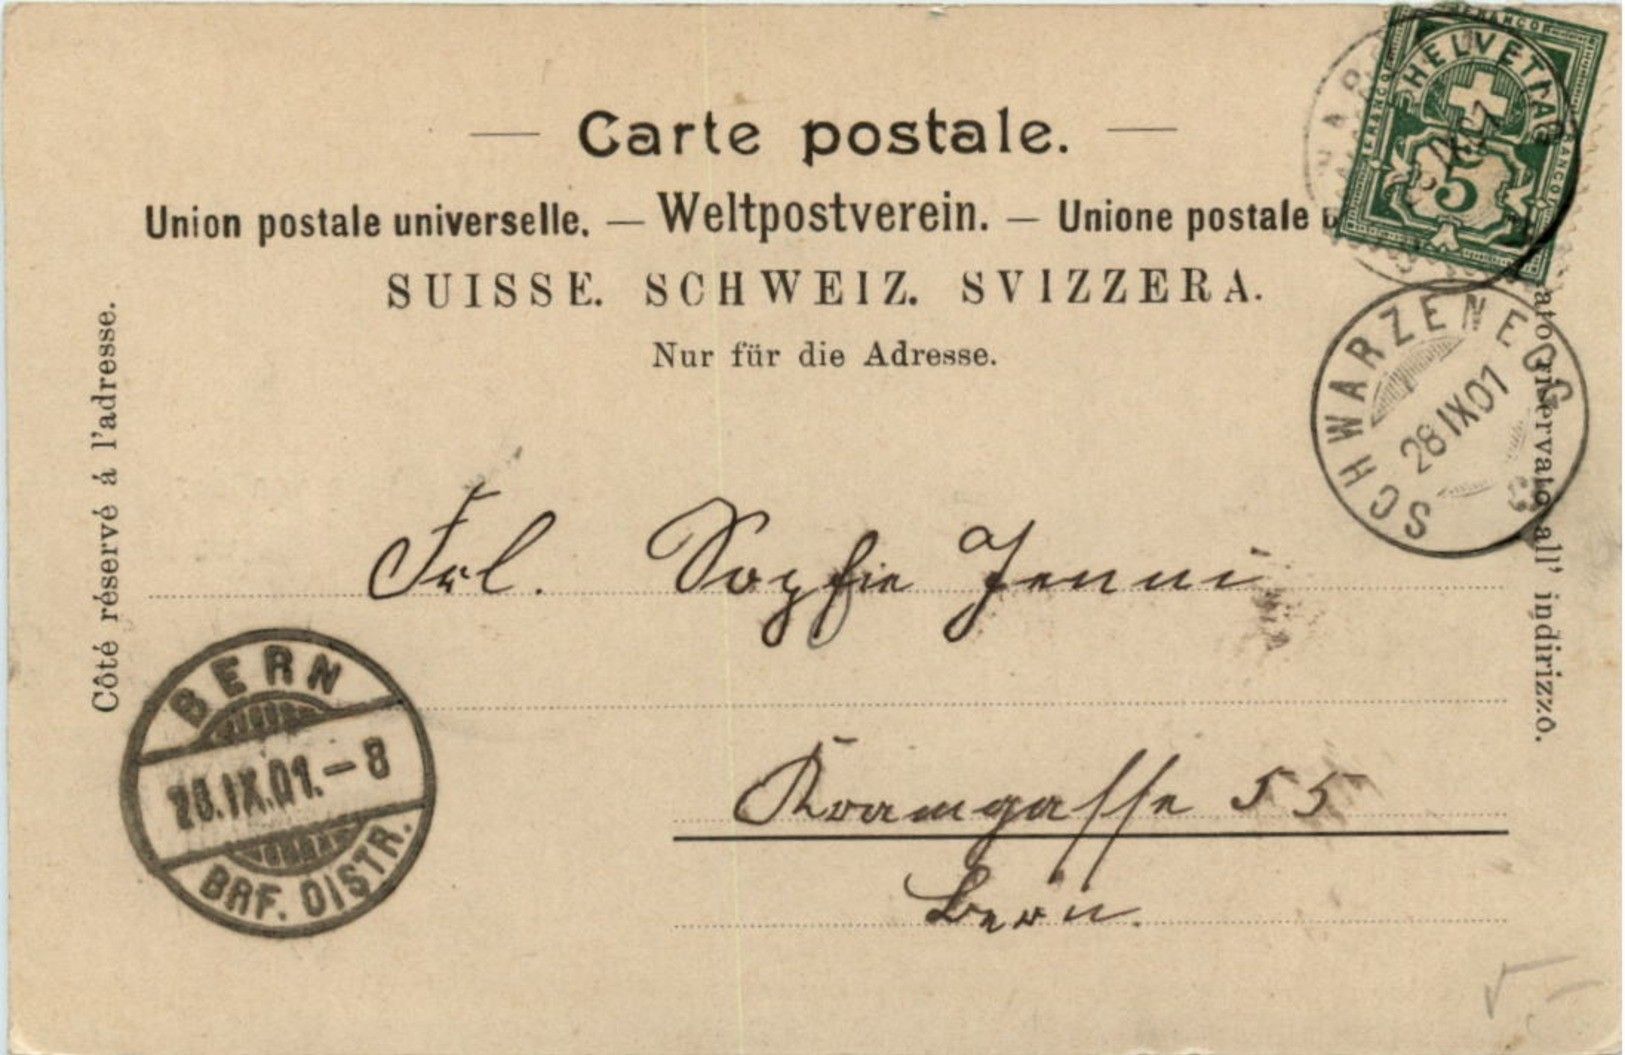 Carte postale.
Union postale universelle. — Weltpostverein. — Unione postale
SUISSE. SCHWEIZ. SVIZZERA.
Nur für die Adresse.
Côté réservé á l'adresse.
riservato all' indirizzo.
FRANCO
FRANCO
FRANCO
HELVETIA
5
SCHWARZENEGG
28 IX 01
Frl. Sophie Jenni
Kramgasse 55
Bern.
BERN
28.IX.01.–8
BRF. DISTR.